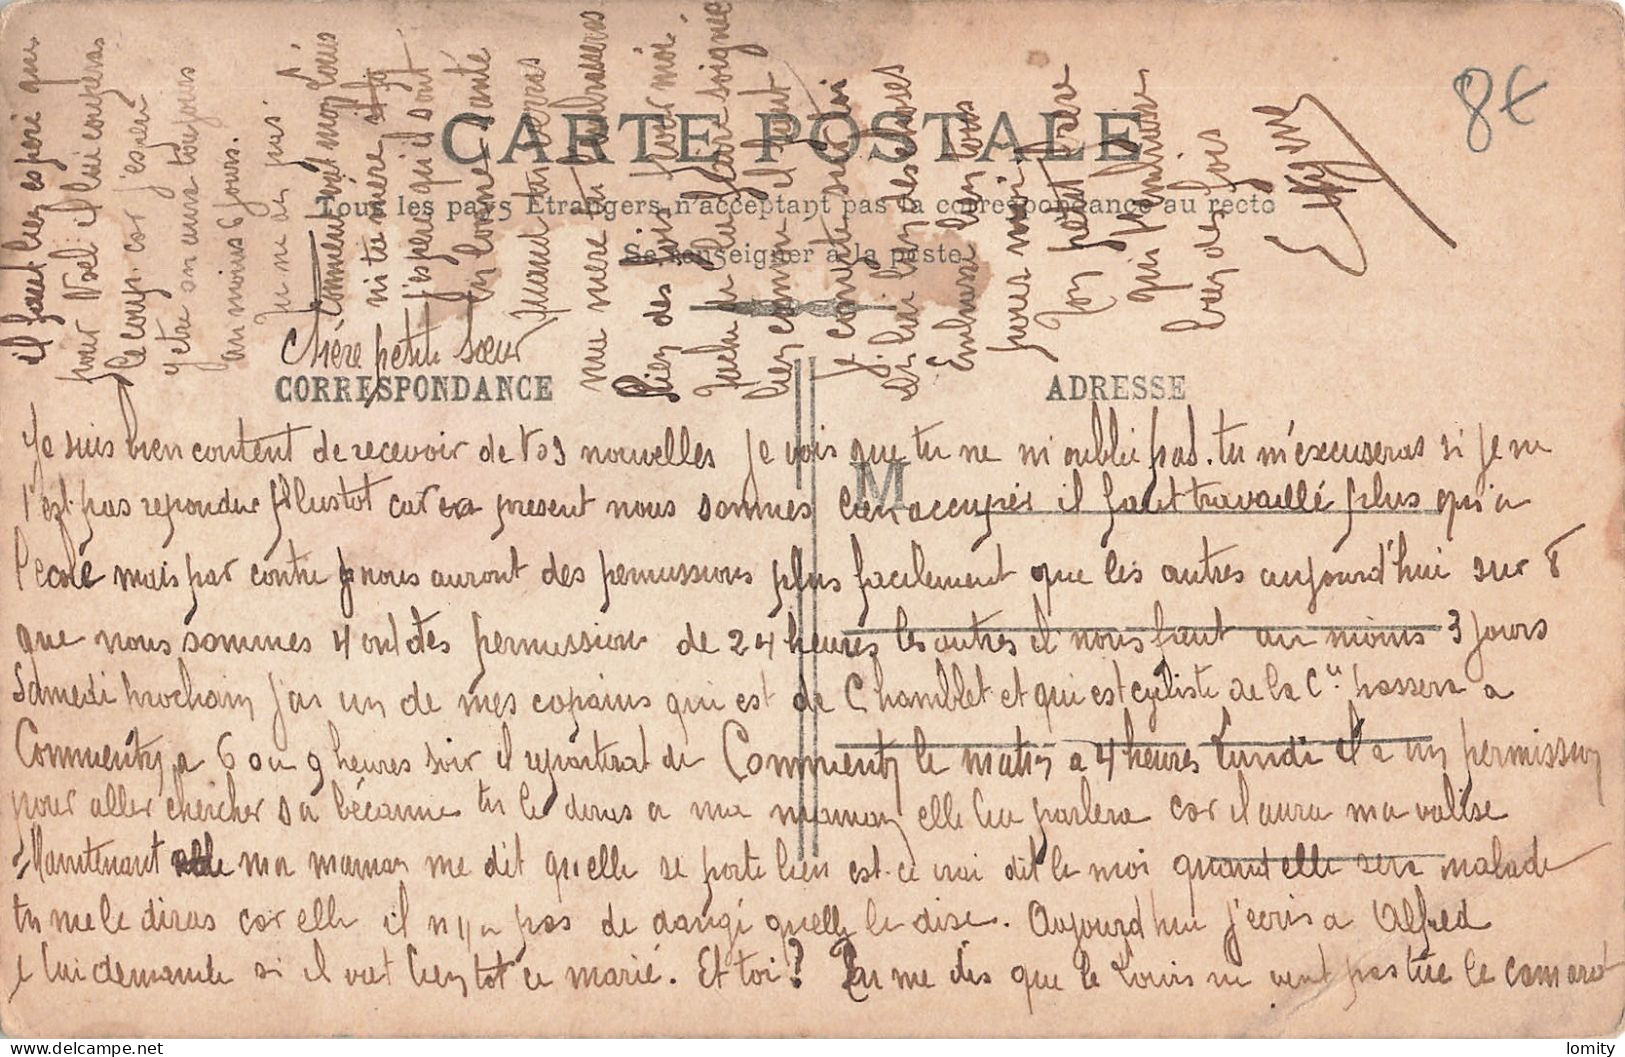 8€
CARTE POSTALE
Tous les pays Étrangers n'acceptent pas la correspondance au recto
Se renseigner à la poste
CORRESPONDANCE
ADRESSE
M
Chère petite Sœur
Je suis bien content de recevoir de Vos nouvelles je vois que tu ne m'oublie pas. tu m'excuseras si je ne
t'est pas repondue plustot car a present nous sommes bien accupés il faut travaillé plus qu'a
l'ecole mais par contre nous auront des permissions plus facilement que les autres aujourd'hui sur 8
que nous sommes 4 ont des permission de 24 heures les autres il nous faut au moins 3 jours
Samedi prochain j'ai un de mes copains qui est de Chamblet et qui est cycliste de la Cie passera a
Commentry a 6 ou 9 heures soir il repartirat de Commentry le matin a 4 heures Lundi il a un permission
pour aller chercher sa bécanne tu le diras a ma maman elle lui parlera car il aura ma valise
Maintenant ma maman me dit quelle se porte bien est-ce vrai dit le moi quand elle sera malade
tu me le diras car elle il n'y a pas de dangé quelle le dise. Aujourd'hui j'ecris a Alfred
e lui demande si il vat bientot ce marié. Et toi? Tu me dis que le Louis ne veut pas tué le camarot
il faut bien esperé que
pour Noel il lui coupera
le coup. car j'espere
y etre on aura toujours
au moins 6 jours.
Tu ne dis pas
Comment vé mon Louis
ni ta mère
j'espere qu'il sont
en bonne santé
quand tu verras
ma mere tu l'embrasseras
bien des fois pour moi.
Tache de la faire soignée
bien comme il faut
je compte sur toi
Embrasse les tous
pour moi
Ton petit frère
qui t'embrasse
bien des fois
lomity